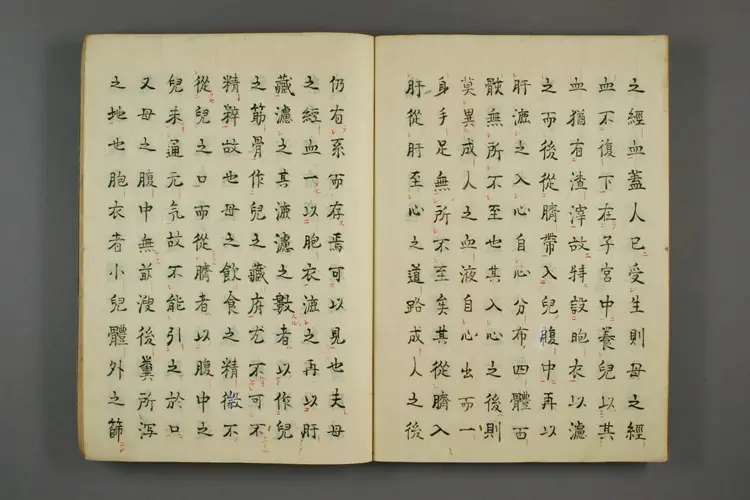 之經血蓋人已受生則母之經
血不復下在子宮中養兒以其
血猶有渣滓故特設胞衣以濾
之而後從臍帶入兒腹中再以
肝漉之入心自心分布四體百
骸無所不至也其入心之後則
莫異成人之血液自心出而一
身手足無所不至矣其從臍入
肝從肝至心之道路成人之後
仍有系而存焉可以見也夫母
之經血一以胞衣漉之再以肝
藏濾之其漉濾之數者以作兒
之筋骨作兒之藏府尤不可不
精粹故也母之飲食之精微不
從兒之口而從臍者以腹中之
兒未通元氣故不能引之於口
又母之腹中無前溲後糞所瀉
之地也胞衣者小兒體外之篩